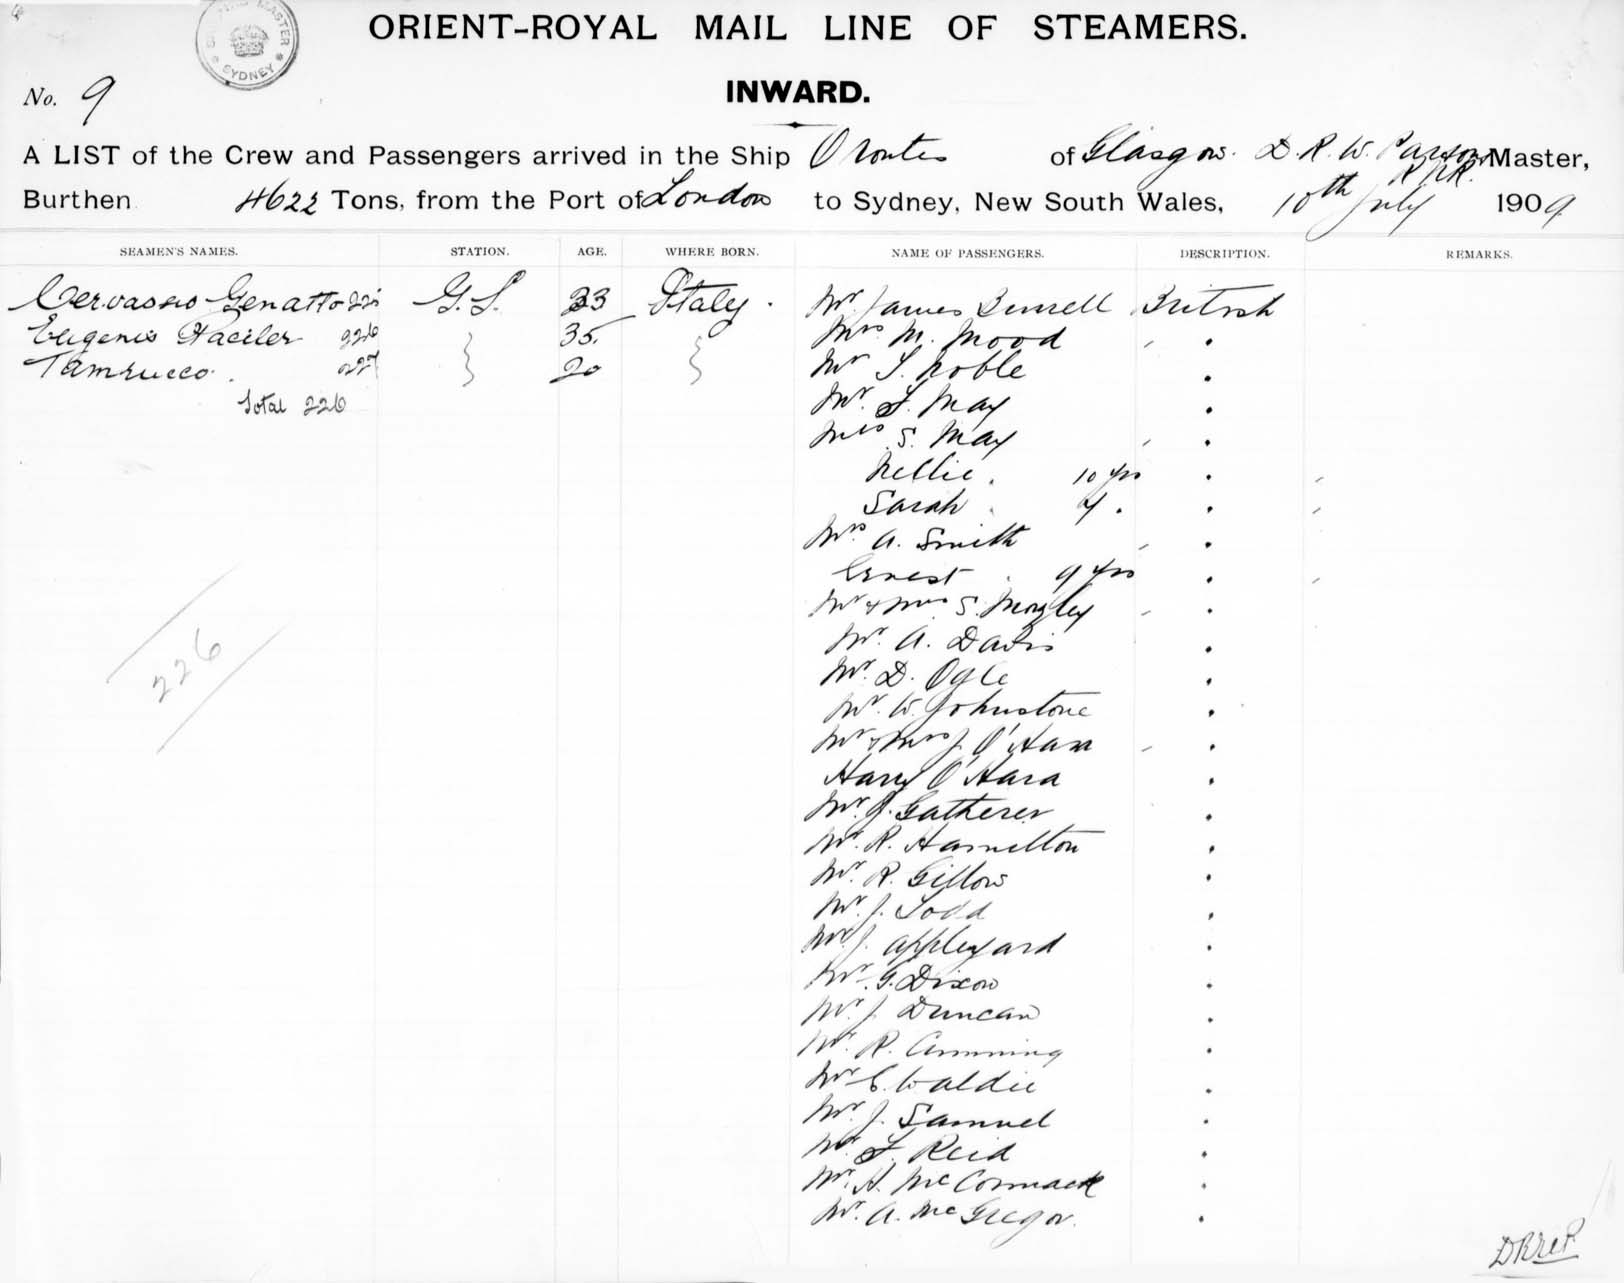 SYDNEY
ORIENT-ROYAL MAIL LINE OF STEAMERS.
No. 9
INWARD.
A LIST of the Crew and Passengers arrived in the Ship Orontes of Glasgow. D. R. W. Parsons R.N.R. Master,
Burthen 4622 Tons, from the Port of London to Sydney, New South Wales, 10th July 1909
SEAMEN'S NAMES. STATION. AGE. WHERE BORN. NAME OF PASSENGERS. DESCRIPTION. REMARKS.
Genatto 225 G.S. 33 Italy. Mr James Burrell British
226 35 Mrs M. Mood
227 20 Mr S. Noble
Total 226 Mr. F. May
Mrs S. May
Nellie. 10 yrs
Sarah
Mrs. A. Smith
Ernest. 9 yrs
Mr & Mrs S. Mozley
Mr. A. Davis
226 Mr. D. Ogle
Mr. W. Johnstone
Mr & Mrs J. O'Hara
Harry O'Hara
Mr. J. Gatherer
Mr. R. Hamilton
Mr. R. Gillow
Mr. J. Todd
Mr J. Appleyard
Mr. G. Dixon
Mr. J. Duncan
Mr. R. Cumming
Mr C. Waldie
Mr. J. Samuel
Mr. F. Reid
Mr. H. McCormack
Mr. A. McGregor.